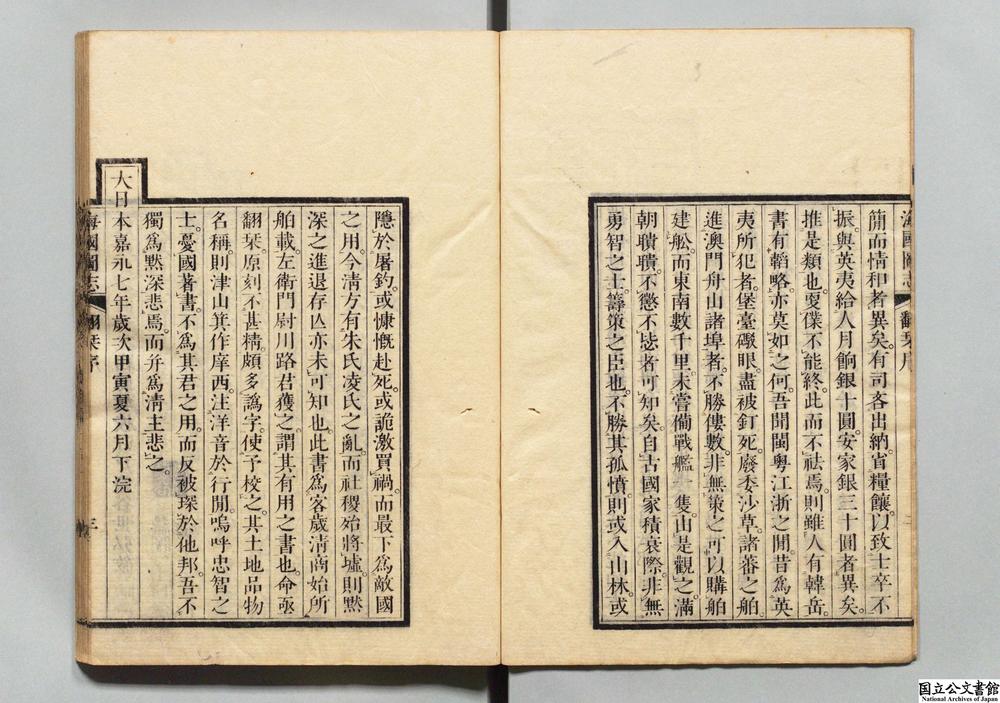 海國圖志 翻栞序
簡而情和者異矣。有司吝出納。省糧饟。以致士卒不
振。與英夷給人月餉銀十圓。安家銀三十圓者異矣。
推是類也。更僕不能終。此而不祛焉。則雖人有韓岳。
書有韜略。亦莫如之何。吾聞閩粤江浙之閒。昔爲英
夷所犯者。堡臺礮眼。盡被釘死。廢委沙草。諸蕃之舶
進澳門舟山諸埠者。不勝僂數。非無策之可以購舶
建舩。而東南數千里。未嘗備戰艦一隻。由是觀之。滿
朝聵聵。不懲不毖者可知矣。自古國家積衰際。非無
勇智之士。籌策之臣也。不勝其孤憤。則或入山林。或
隱於屠釣。或慷慨赴死。或詭激買禍。而最下爲敵國
之用。今淸方有朱氏凌氏之亂。而社稷始將墟。則默
深之進退存亾。亦未可知也。此書爲客歲淸商始所
舶載。左衛門尉川路君獲之。謂其有用之書也。命亟
翻栞。原刻不甚精。頗多譌字。使予校之。其土地品物
名稱。則津山箕作庠西。注洋音於行閒。嗚呼忠智之
士。憂國著書。不爲其君之用。而反被琛於他邦。吾不
獨爲默深悲焉。而幷爲淸主悲之。
大日本嘉永七年歲次甲寅夏六月下浣
海國圖志 翻栞序 三
国立公文書館
National Archives of Japan